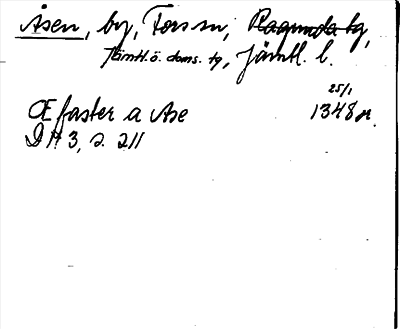 Åsen, by, Fors sn, Ragunda tg,
Jämtl. ö. doms. tg, Jämtl. l.
25/1
Œfaster a Ase 1348 or.
DN 3, s. 211